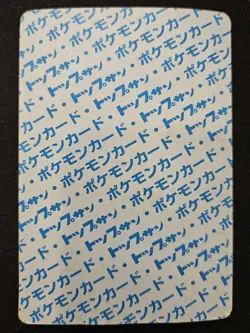 モンカード・
トップサン・ポケモンカード
ポケモンカード・トップサン
カード・トップサン・ポケモンカード
トップサン・ポケモンカード・
ポケモンカード・トップサン・
カード・トップサン・ポケモン
トップサン・ポケモンカード・
ポケモンカード・トップサン・
カード・トップサン・ポケモン
トップサン・ポケモンカード
ポケモンカード・トップサン
トップサン・ポケモンカード
ポケモンカード